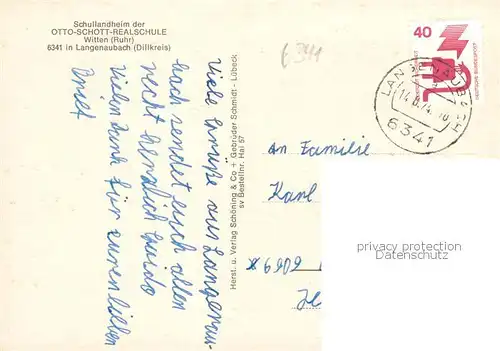 Schullandheim der
OTTO-SCHOTT-REALSCHULE
Witten (Ruhr)
6341 in Langenaubach (Dillkreis)
Viele Grüße aus Langenau-
bach sendet euch allen
recht herzlich Guido
Vielen Dank für euren lieben
Brief
Herst. u. Verlag Schöning & Co + Gebrüder Schmidt - Lübeck
sv Bestellnr. Hai 57
6341
40
DEUTSCHE BUNDESPOST
LANGENAUBACH
6341
An Familie
Karl
6909
privacy protection
Datenschutz